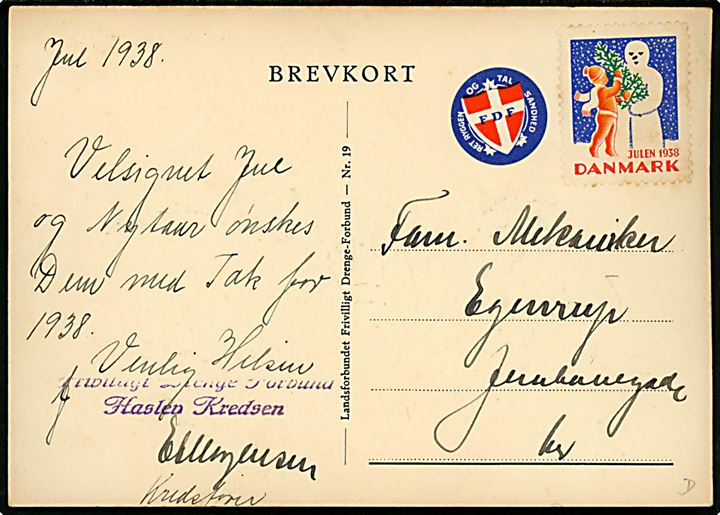 Jul 1938.
BREVKORT
RET RYGGEN OG TAL SANDHED
FDF
JULEN 1938
DANMARK
Velsignet Jul
og Nytaar ønskes
Dem med Tak for
1938.
Venlig Hilsen
f
Frivilligt Drenge Forbund
Haslev Kredsen
Kredsfører
Landsforbundet Frivilligt Drenge-Forbund — Nr. 19
Fam. Mekaniker
Egerup
Jernbanegade
her
D